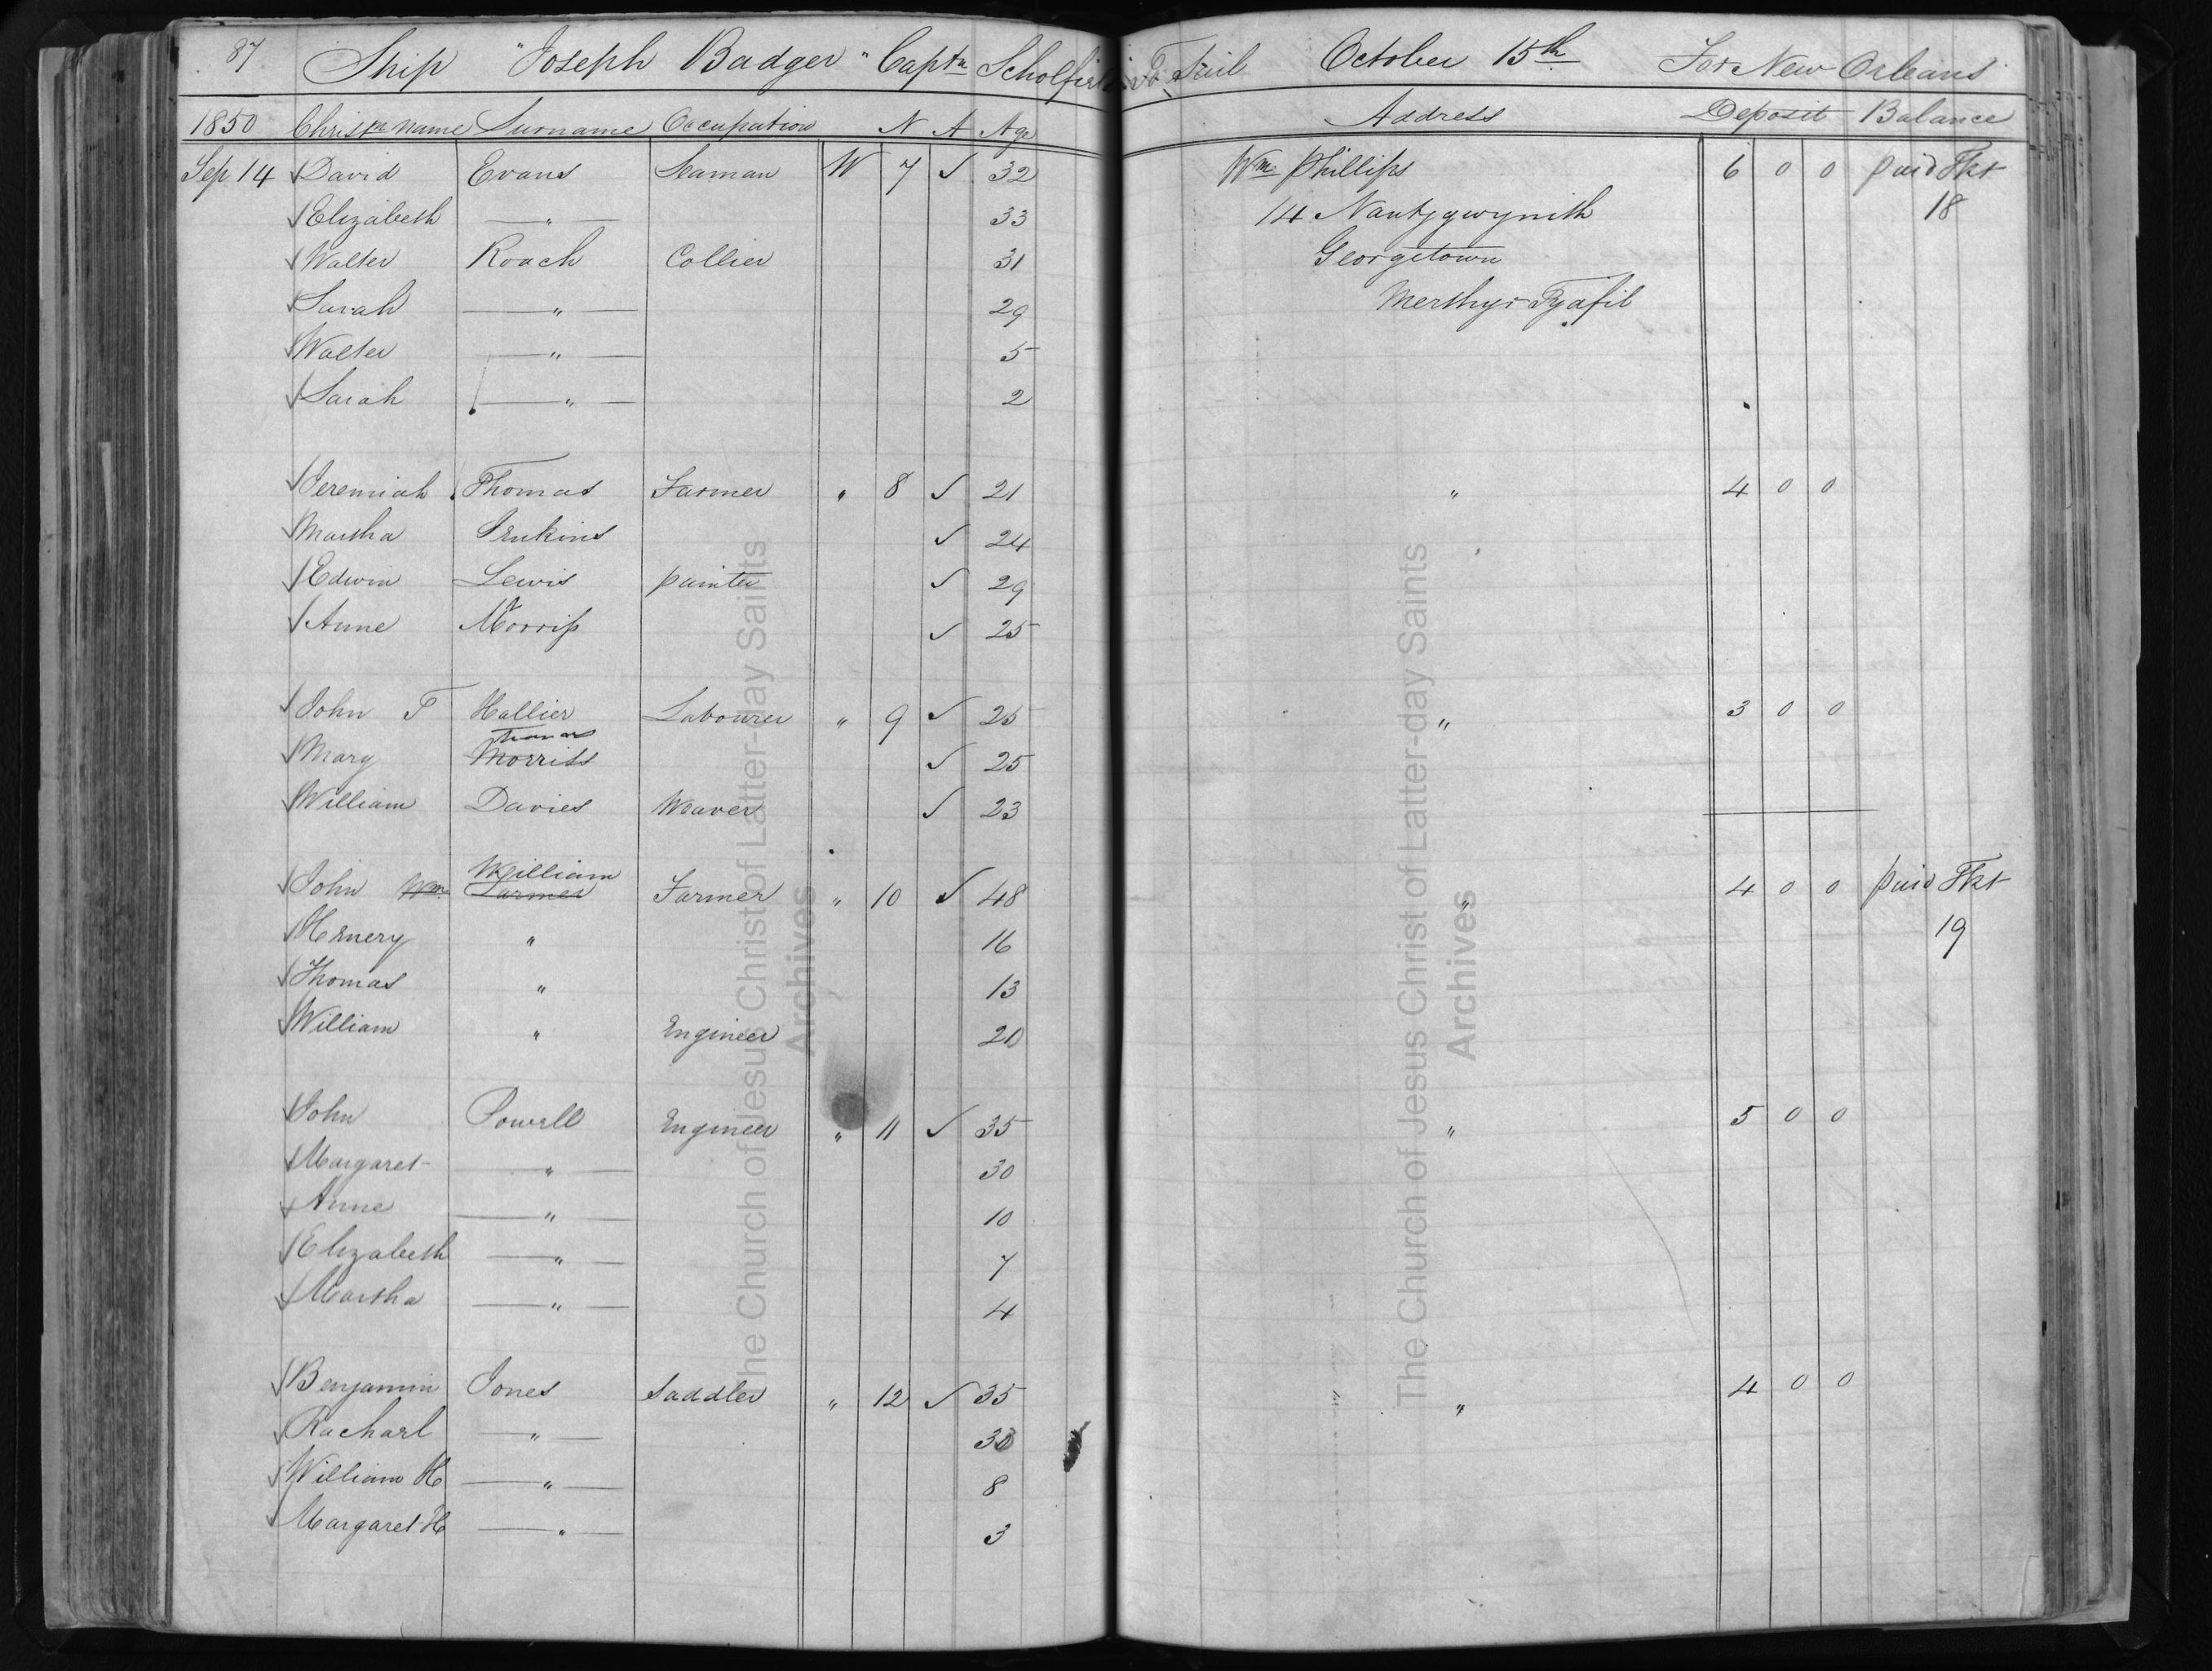 87 Ship "Joseph Badger" Captn Scholfield To Sail October 15th For New Orleans
1850 Chrisn name Surname Occupation N A Age Address Deposit Balance
Sep 14 David Evans Seaman W 7 ✓ 32 Wm Phillips 6 0 0 paid Tkt
Elizabeth " 33 14 Nantygwynith 18
Walter Roach Collier 31 Georgetown
Sarah " 29 Merthyr Tydfil
Walter " 5
Sarah " 2
Jeremiah Thomas Farmer " 8 ✓ 21 " 4 0 0
Martha Jenkins ✓ 24
Edwin Lewis painter ✓ 29
Anne Morriss ✓ 25
John T Hallier Labourer " 9 ✓ 25 " 3 0 0
Mary Morriss ✓ 25
William Davies Weaver ✓ 23
William
John Wm Farmer Farmer " 10 ✓ 48 " 4 0 0 paid Tkt
Hernery " 16 19
Thomas " 13
William " Engineer 20
John Powell Engineer " 11 ✓ 35 " 5 0 0
Margaret " 30
Anne " 10
Elizabeth " 7
Martha " 4
Benjamin Jones Saddler " 12 ✓ 35 " 4 0 0
Rachael "
William H " 8
Margaret H " 3
The Church of Jesus Christ of Latter-day Saints
Archives
The Church of Jesus Christ of Latter-day Saints
Archives